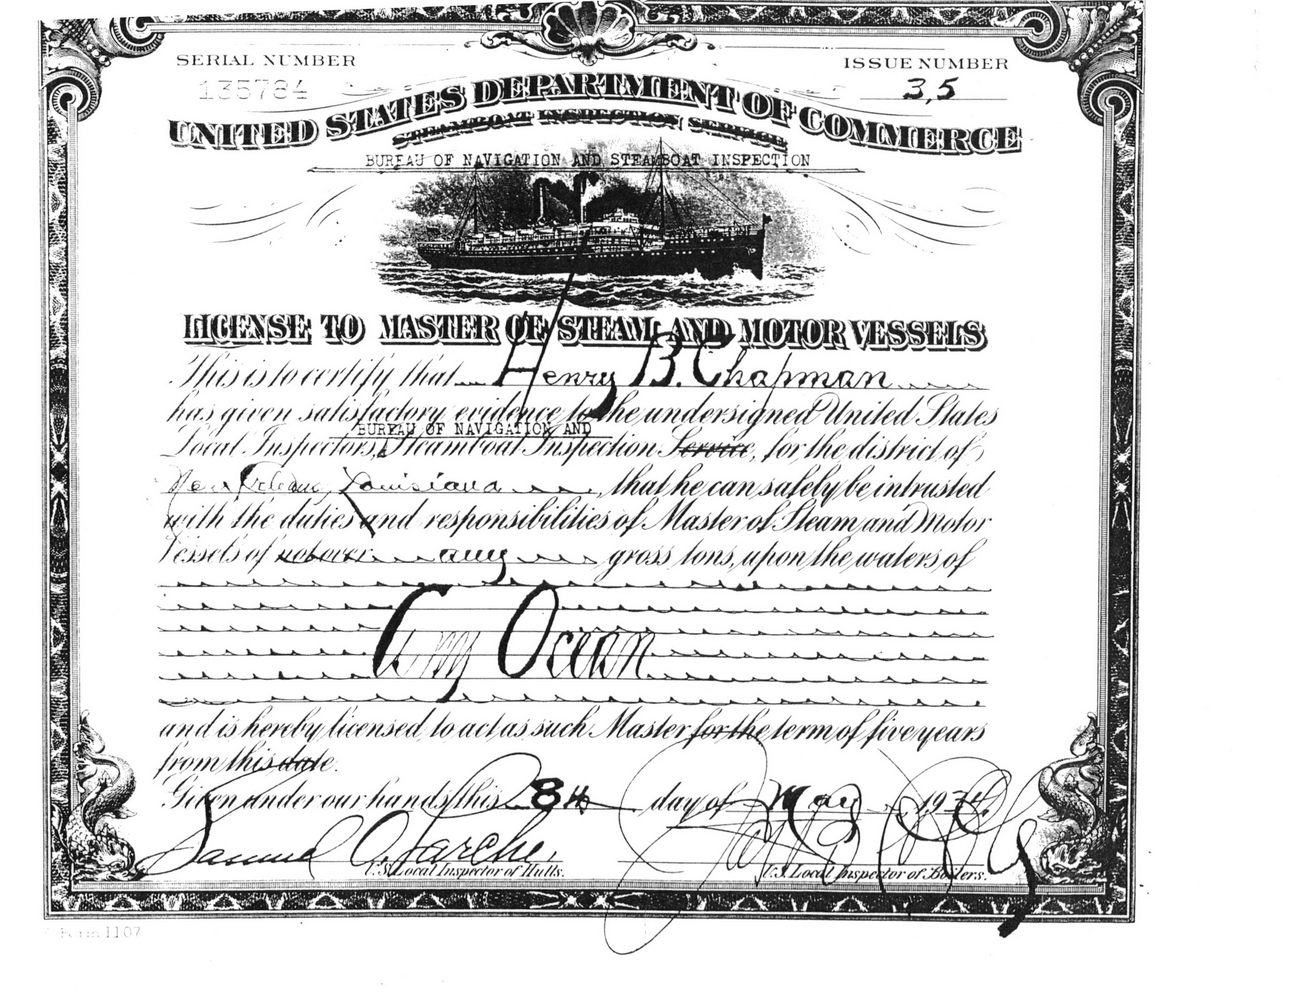 SERIAL NUMBER
135784
ISSUE NUMBER
3,5
UNITED STATES DEPARTMENT OF COMMERCE
STEAMBOAT INSPECTION SERVICE
BUREAU OF NAVIGATION AND STEAMBOAT INSPECTION
LICENSE TO MASTER OF STEAM AND MOTOR VESSELS
This is to certify that Henry B. Chapman
has given satisfactory evidence to the undersigned United States
BUREAU OF NAVIGATION AND
Local Inspectors, Steamboat Inspection Service, for the district of
New Orleans, Louisiana, that he can safely be intrusted
with the duties and responsibilities of Master of Steam and Motor
Vessels of not over any gross tons, upon the waters of
Any Ocean
and is hereby licensed to act as such Master for the term of five years
from this date.
Given under our hands this 8th day of May, 1934.
Samuel
U.S. Local Inspector of Hulls.
U.S. Local Inspector of Boilers.
Form 1107